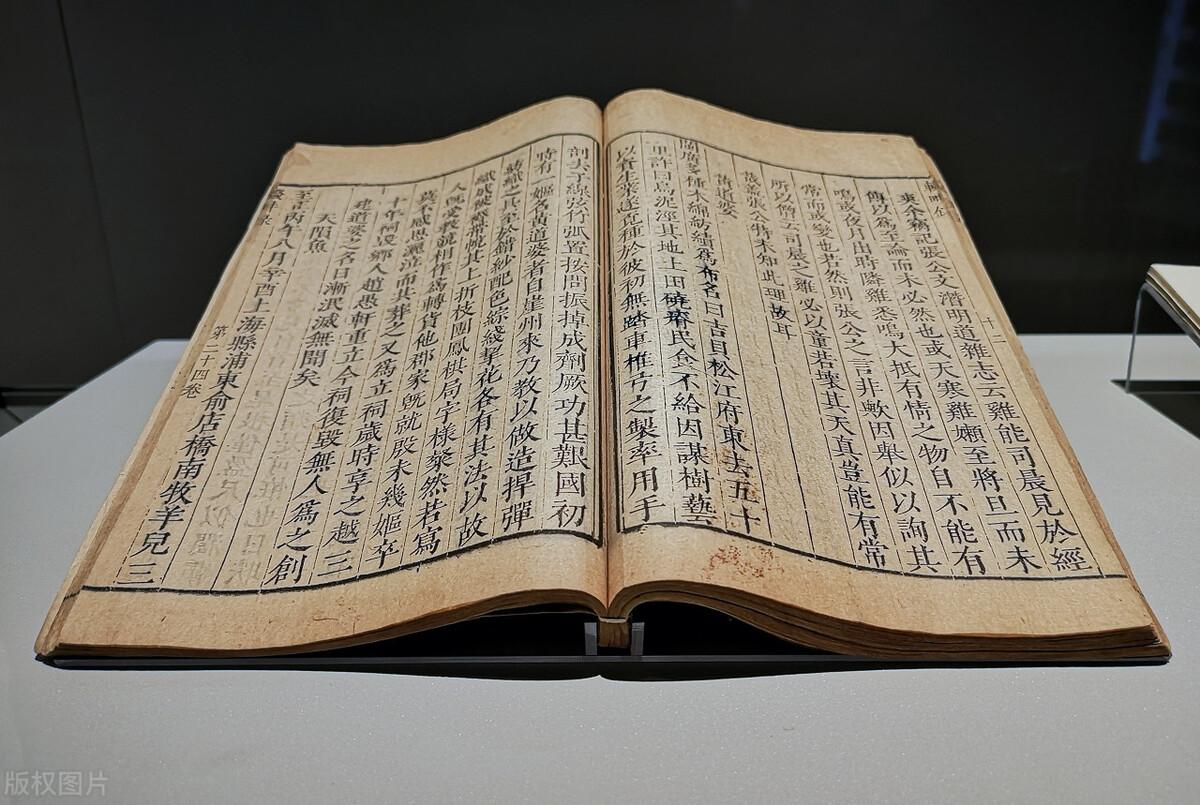 記張公文潛明道雜志云雞能司晨見於經
傳以爲至論而未必然也或天寒雞嬾至將旦而未
鳴或夜月出時隣雞悉鳴大抵有情之物自不能有
常而或變也若然則張公之言非歟因舉似以詢其
所以僧云司晨之雞必以童若壞其天真豈能有常
哉蓋張公特未知此理故耳
黃道婆
閩廣多種木綿紡績爲布名曰吉貝松江府東去五十
里許曰烏泥涇其地土田磽瘠民食不給因謀樹藝
以資生業遂覓種於彼初無踏車椎弓之製率用手
剖去子線弦竹弧置按間振掉成劑厥功甚艱國初
時有一嫗名黃道婆者自崖州來乃教以做造捍彈
紡織之具至於錯紗配色綜綫挈花各有其法以故
織成被褥帶帨其上折枝團鳳棋局字樣粲然若寫
人既受教競相作爲轉貨他郡家既就殷未幾嫗卒
莫不感恩灑泣而共葬之又爲立祠歲時享之越三
十年祠毀鄉人趙愚軒重立今祠復毀無人爲之創
建道婆之名日漸泯滅無聞矣
天隕魚
至正丙午八月辛酉上海縣浦東俞店橋南牧羊兒三
第二十四卷
十二
版权图片